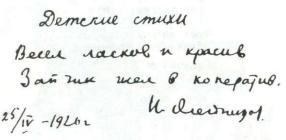 Детские стихи
Весел ласков и красив
Зайчик шел в коператив.
И. Олейников.
25/IV -1926 г